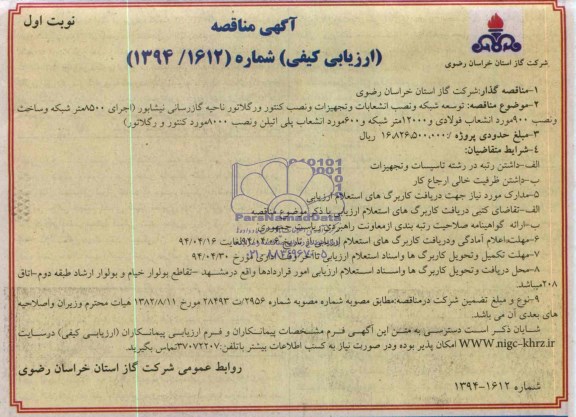 نوبت اول
آگهی مناقصه
(ارزیابی کیفی) شماره (۱۶۱۲/ ۱۳۹۴)
شرکت گاز استان خراسان رضوی
۱-مناقصه گذار:شرکت گاز استان خراسان رضوی
۲-موضوع مناقصه: توسعه شبکه ونصب انشعابات وتجهیزات ونصب کنتور ورگلاتور ناحیه گازرسانی نیشابور (اجرای ۸۵۰۰متر شبکه وساخت
ونصب ۹۰۰مورد انشعاب فولادی و۱۲۰۰۰متر شبکه و۶۰۰مورد انشعاب پلی اتیلن ونصب ۸۰۰۰مورد کنتور و رگلاتور)
۳-مبلغ حدودی پروژه /۱۶،۸۲۶،۵۰۰،۰۰۰ ریال
۴-شرایط متقاضیان:
الف-داشتن رتبه در رشته تاسیسات وتجهیزات
ب-داشتن ظرفیت خالی ارجاع کار
۵-مدارک مورد نیاز جهت دریافت کاربرگ های استعلام ارزیابی
الف-تقاضای کتبی دریافت کاربرگ های استعلام ارزیابی با ذکر موضوع مناقصه
ب-ارائه گواهینامه صلاحیت رتبه بندی ازمعاونت راهبردی ریاست جمهوری
۶-مهلت اعلام آمادگی ودریافت کاربرگ های استعلام ارزیابی از تاریخ ۹۴/۰۴/۰۶ لغایت ۹۴/۰۴/۱۶
۷-مهلت تکمیل وتحویل کاربرگ ها واسناد استعلام ارزیابی تا آخر وقت اداری مورخ ۹۴/۰۴/۳۰
۸-محل دریافت وتحویل کاربرگ ها واسناد استعلام ارزیابی امور قراردادها واقع درمشهد –تقاطع بولوار خیام و بولوار ارشاد طبقه دوم-اتاق
۲۰۸میباشد.
۹-نوع و مبلغ تضمین شرکت درمناقصه:مطابق مصوبه شماره مصوبه شماره ۲۹۵۶/ت ۲۸۴۹۳ مورخ ۱۳۸۲/۸/۱۱ هیات محترم وزیران واصلاحیه
های بعدی آن می باشد.
شایان ذکر است دسترسی به متن این آگهی فرم مشخصات پیمانکاران و فرم ارزیابی پیمانکاران (ارزیابی کیفی) درسایت
WWW.nigc-khrz.ir امکان پذیر بوده ودر صورت نیاز به کسب اطلاعات بیشتر باتلفن:۳۷۰۷۲۲۰۷تماس بگیرید.
روابط عمومی شرکت گاز استان خراسان رضوی
شماره ۱۶۱۲-۱۳۹۴
ParsNamadData